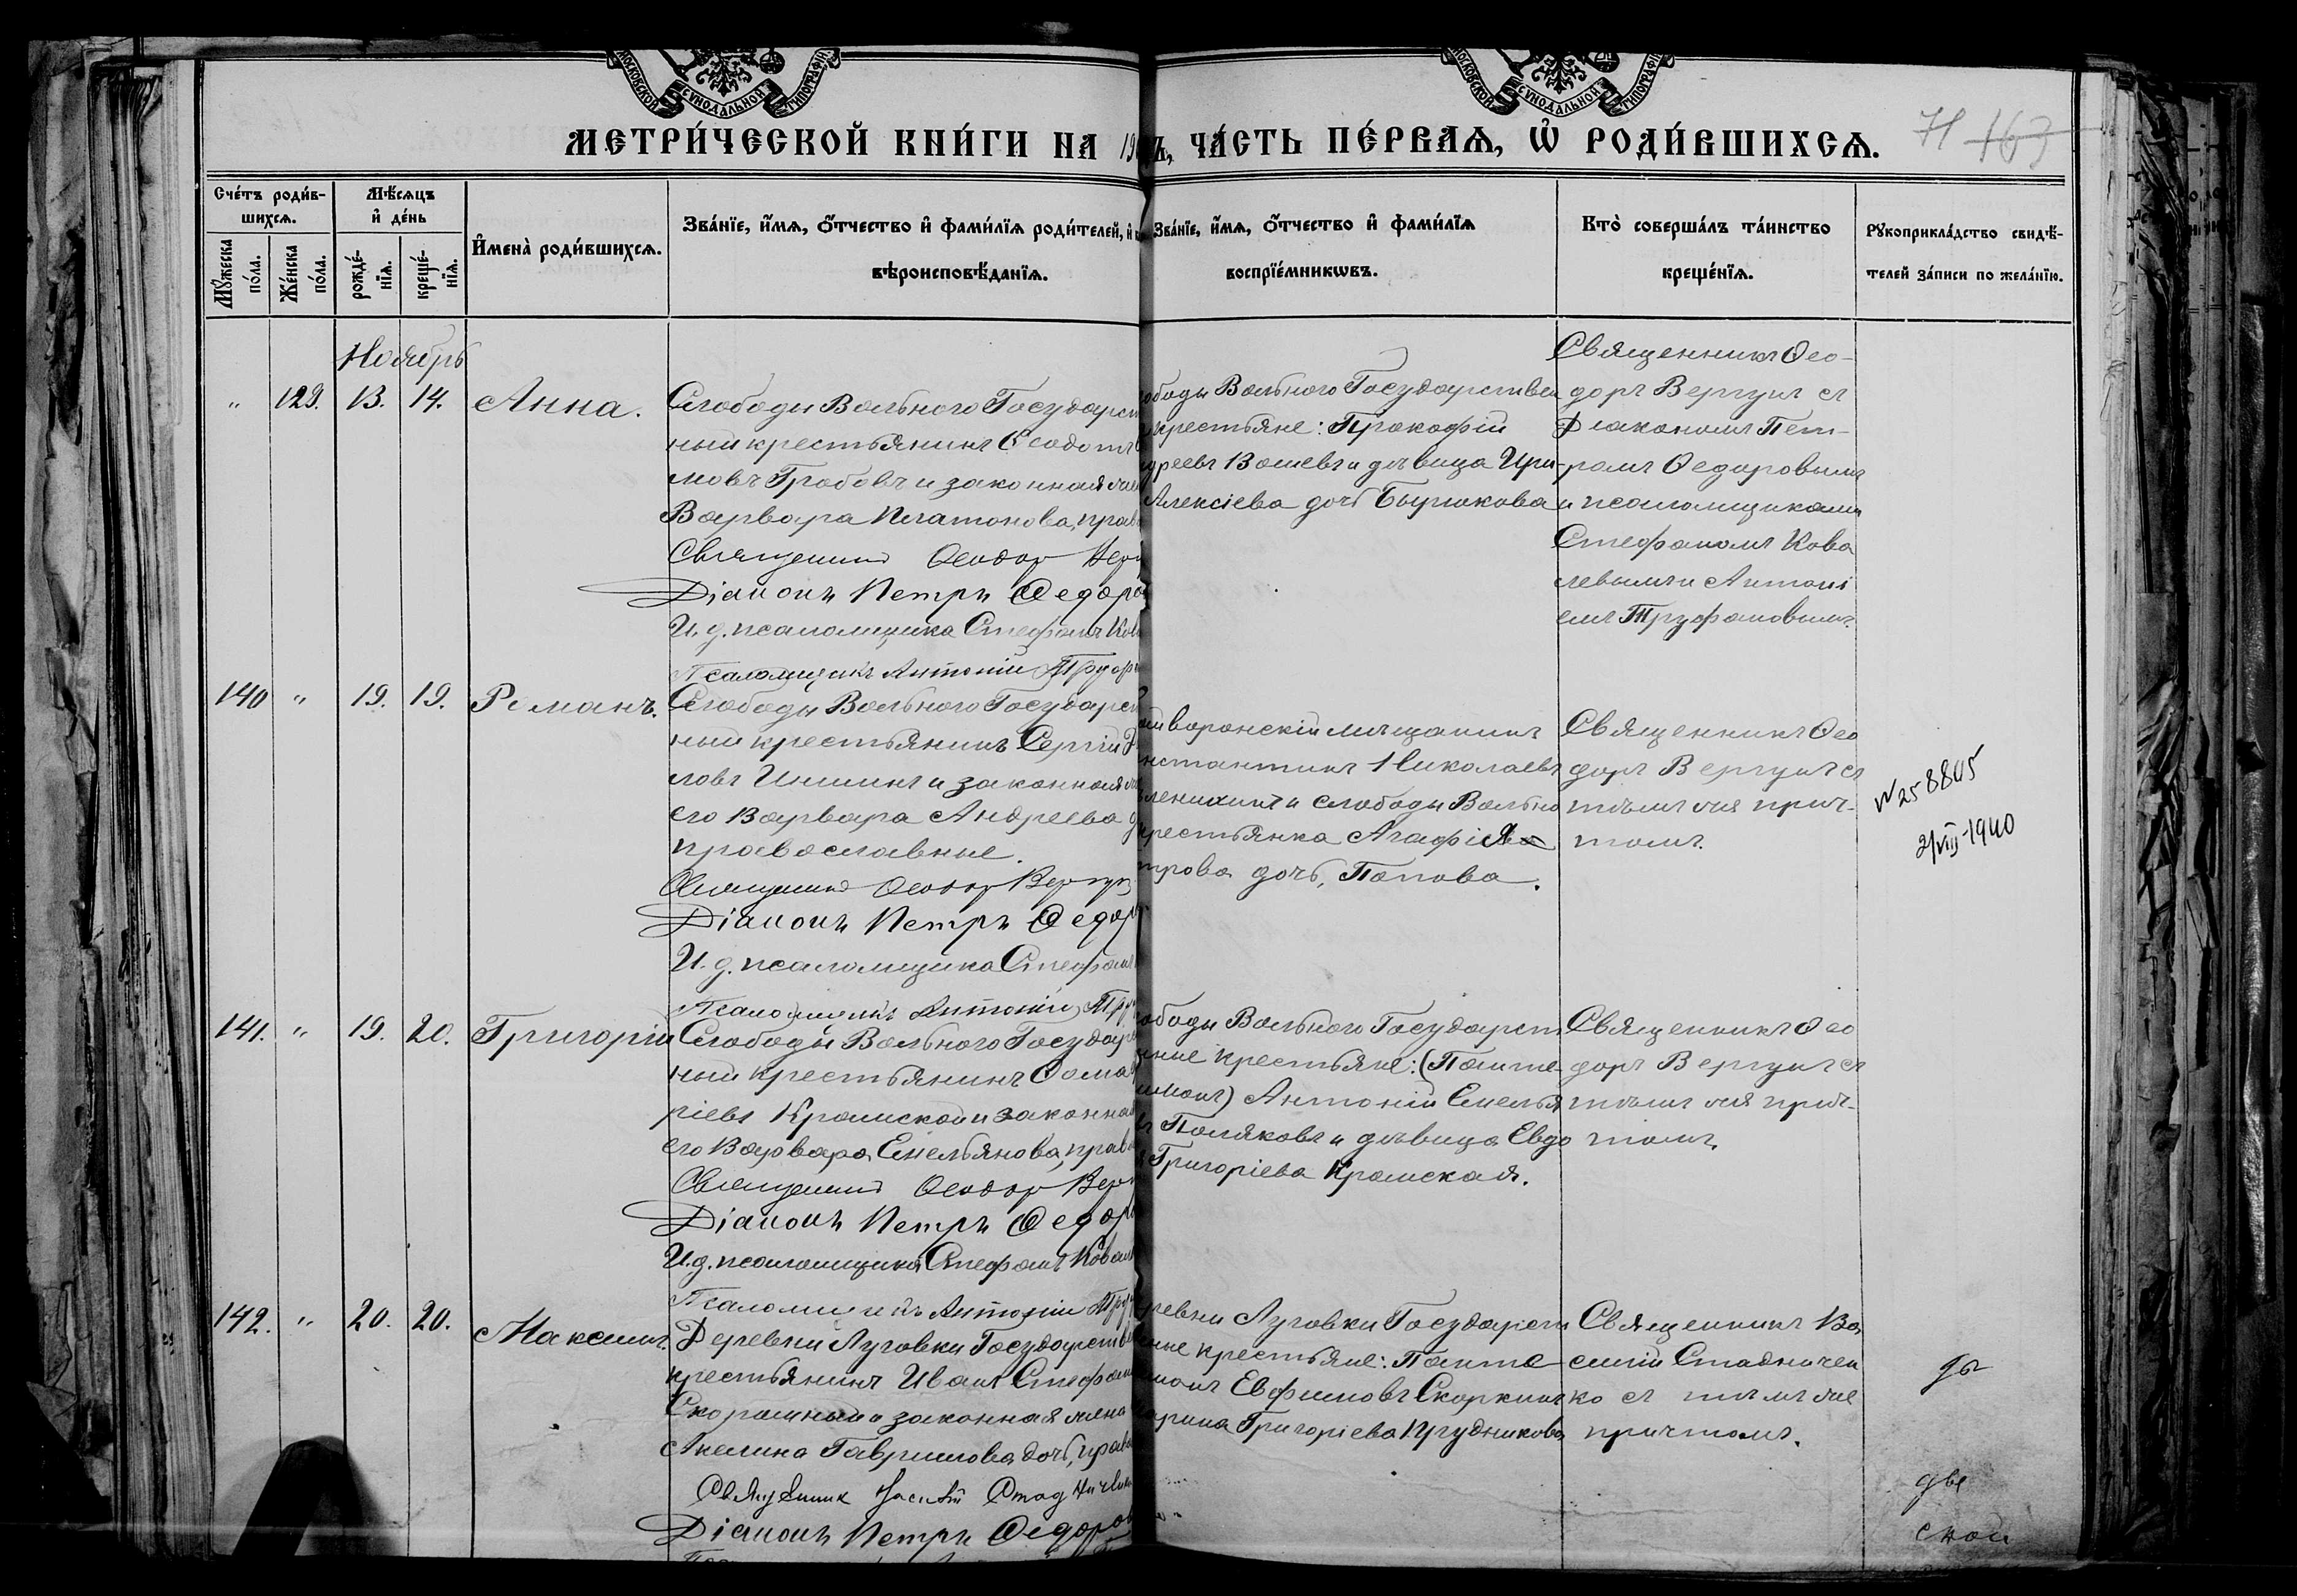 МОСКОВСКОЙ СУНОДАЛЬНОЙ ТИПОГРАФІИ
МОСКОВСКОЙ СУНОДАЛЬНОЙ ТИПОГРАФІИ
МЕТРИ́ЧЕСКОЙ КНИ́ГИ НА 19
Ъ, ЧА́СТЬ ПЕ́РВАѦ, Ѡ҆ РОДИ́ВШИХСѦ.
71 163
Сче́тъ роди́в-
шихсѧ.
Мѣ́сѧцъ
и҆ де́нь
Мꙋ́жеска по́ла.
Же́нска по́ла.
рожде́-нїѧ.
креще́-нїѧ.
И҆мена̀ роди́вшихсѧ.
Зва́нїе, и҆́мѧ, ѻ҆́тчество и҆ фами́лїѧ роди́телей, и҆
вѣроисповѣ́данїѧ.
Зва́нїе, и҆́мѧ, ѻ҆́тчество и҆ фами́лїѧ
воспрїе́мникѡвъ.
Кто̀ соверша́лъ та́инство
креще́нїѧ.
Рꙋкоприкла́дство свидѣ́-
телей за́писи по жела́нїю.
Ноябрь
" 129. 13. 14. Анна.
Слободы Вольного Государст
ный крестьянинъ Ѳеодотъ
мовъ Грабовъ и законная жен
Варвара Платонова, прав
Священникъ Ѳеодор Верг
Діаконъ Петръ Ѳедоро
И. д. псаломщика Стефанъ Ков
Псаломщикъ Антоній Труф
ободы Вольного Государствен
крестьяне: Прокофій
дреевъ и дѣвица Ири-
Алексіева дочь Бирюкова
Священникъ Ѳео-
доръ Вергунъ съ
Діакономъ Пет-
ромъ Ѳедоровымъ
и псаломщиками
Стефаномъ Кова
левымъ и Антоні
емъ Труфановымъ.
140 " 19. 19. Романъ.
Слободы Вольного Государст
ный крестьянинъ Сергій Д
ловъ и законная
его Варвара Андреева д
православные.
Священникъ Ѳеодор Вергун
Діаконъ Петръ Ѳедор
И. д. псаломщика Стефанъ
Псаломщикъ Антоній Тру
воронскій мѣщанинъ
нстантинъ Николаевъ
и слободы Вольно
крестьянка Агафія
трова дочь, Попова.
Священникъ Ѳео
доръ Вергунъ съ
тѣмъ же прич-
томъ.
N 258805
2/VIII-1940
141. " 19. 20. Григорій
Слободы Вольного Государ
ный крестьянинъ Ѳома
ріевъ Крамской и законна
его Варвара Емельянова, прав
Священникъ Ѳеодор Верг
Діаконъ Петръ Ѳедор
И. д. псаломщика Стефанъ Ковал
Псаломщикъ Антоній Тру
ободы Вольного Государст
нные крестьяне: (Панте
имонъ) Антоній Емелья
въ Поляковъ и дѣвица Евдо
Григоріева Крамская.
Священникъ Ѳео
доръ Вергунъ съ
тѣмъ же прич-
томъ.
142. " 20. 20. Максимъ.
Деревни Луговки Государстве
крестьянинъ Иванъ Стефан
и законная жена
Акилина Гавриилова дочь, прав
Священник Василій Стадничен
Діаконъ Петръ Ѳедоров
ревни Луговки Государст
нные крестьяне: Панте
имонъ Евфимовъ Скоркинъ
арина Григоріева Прудникова
Священникъ Ва
силій Стадничен
ко съ тѣмъ же
причтомъ.
дв
две
ской